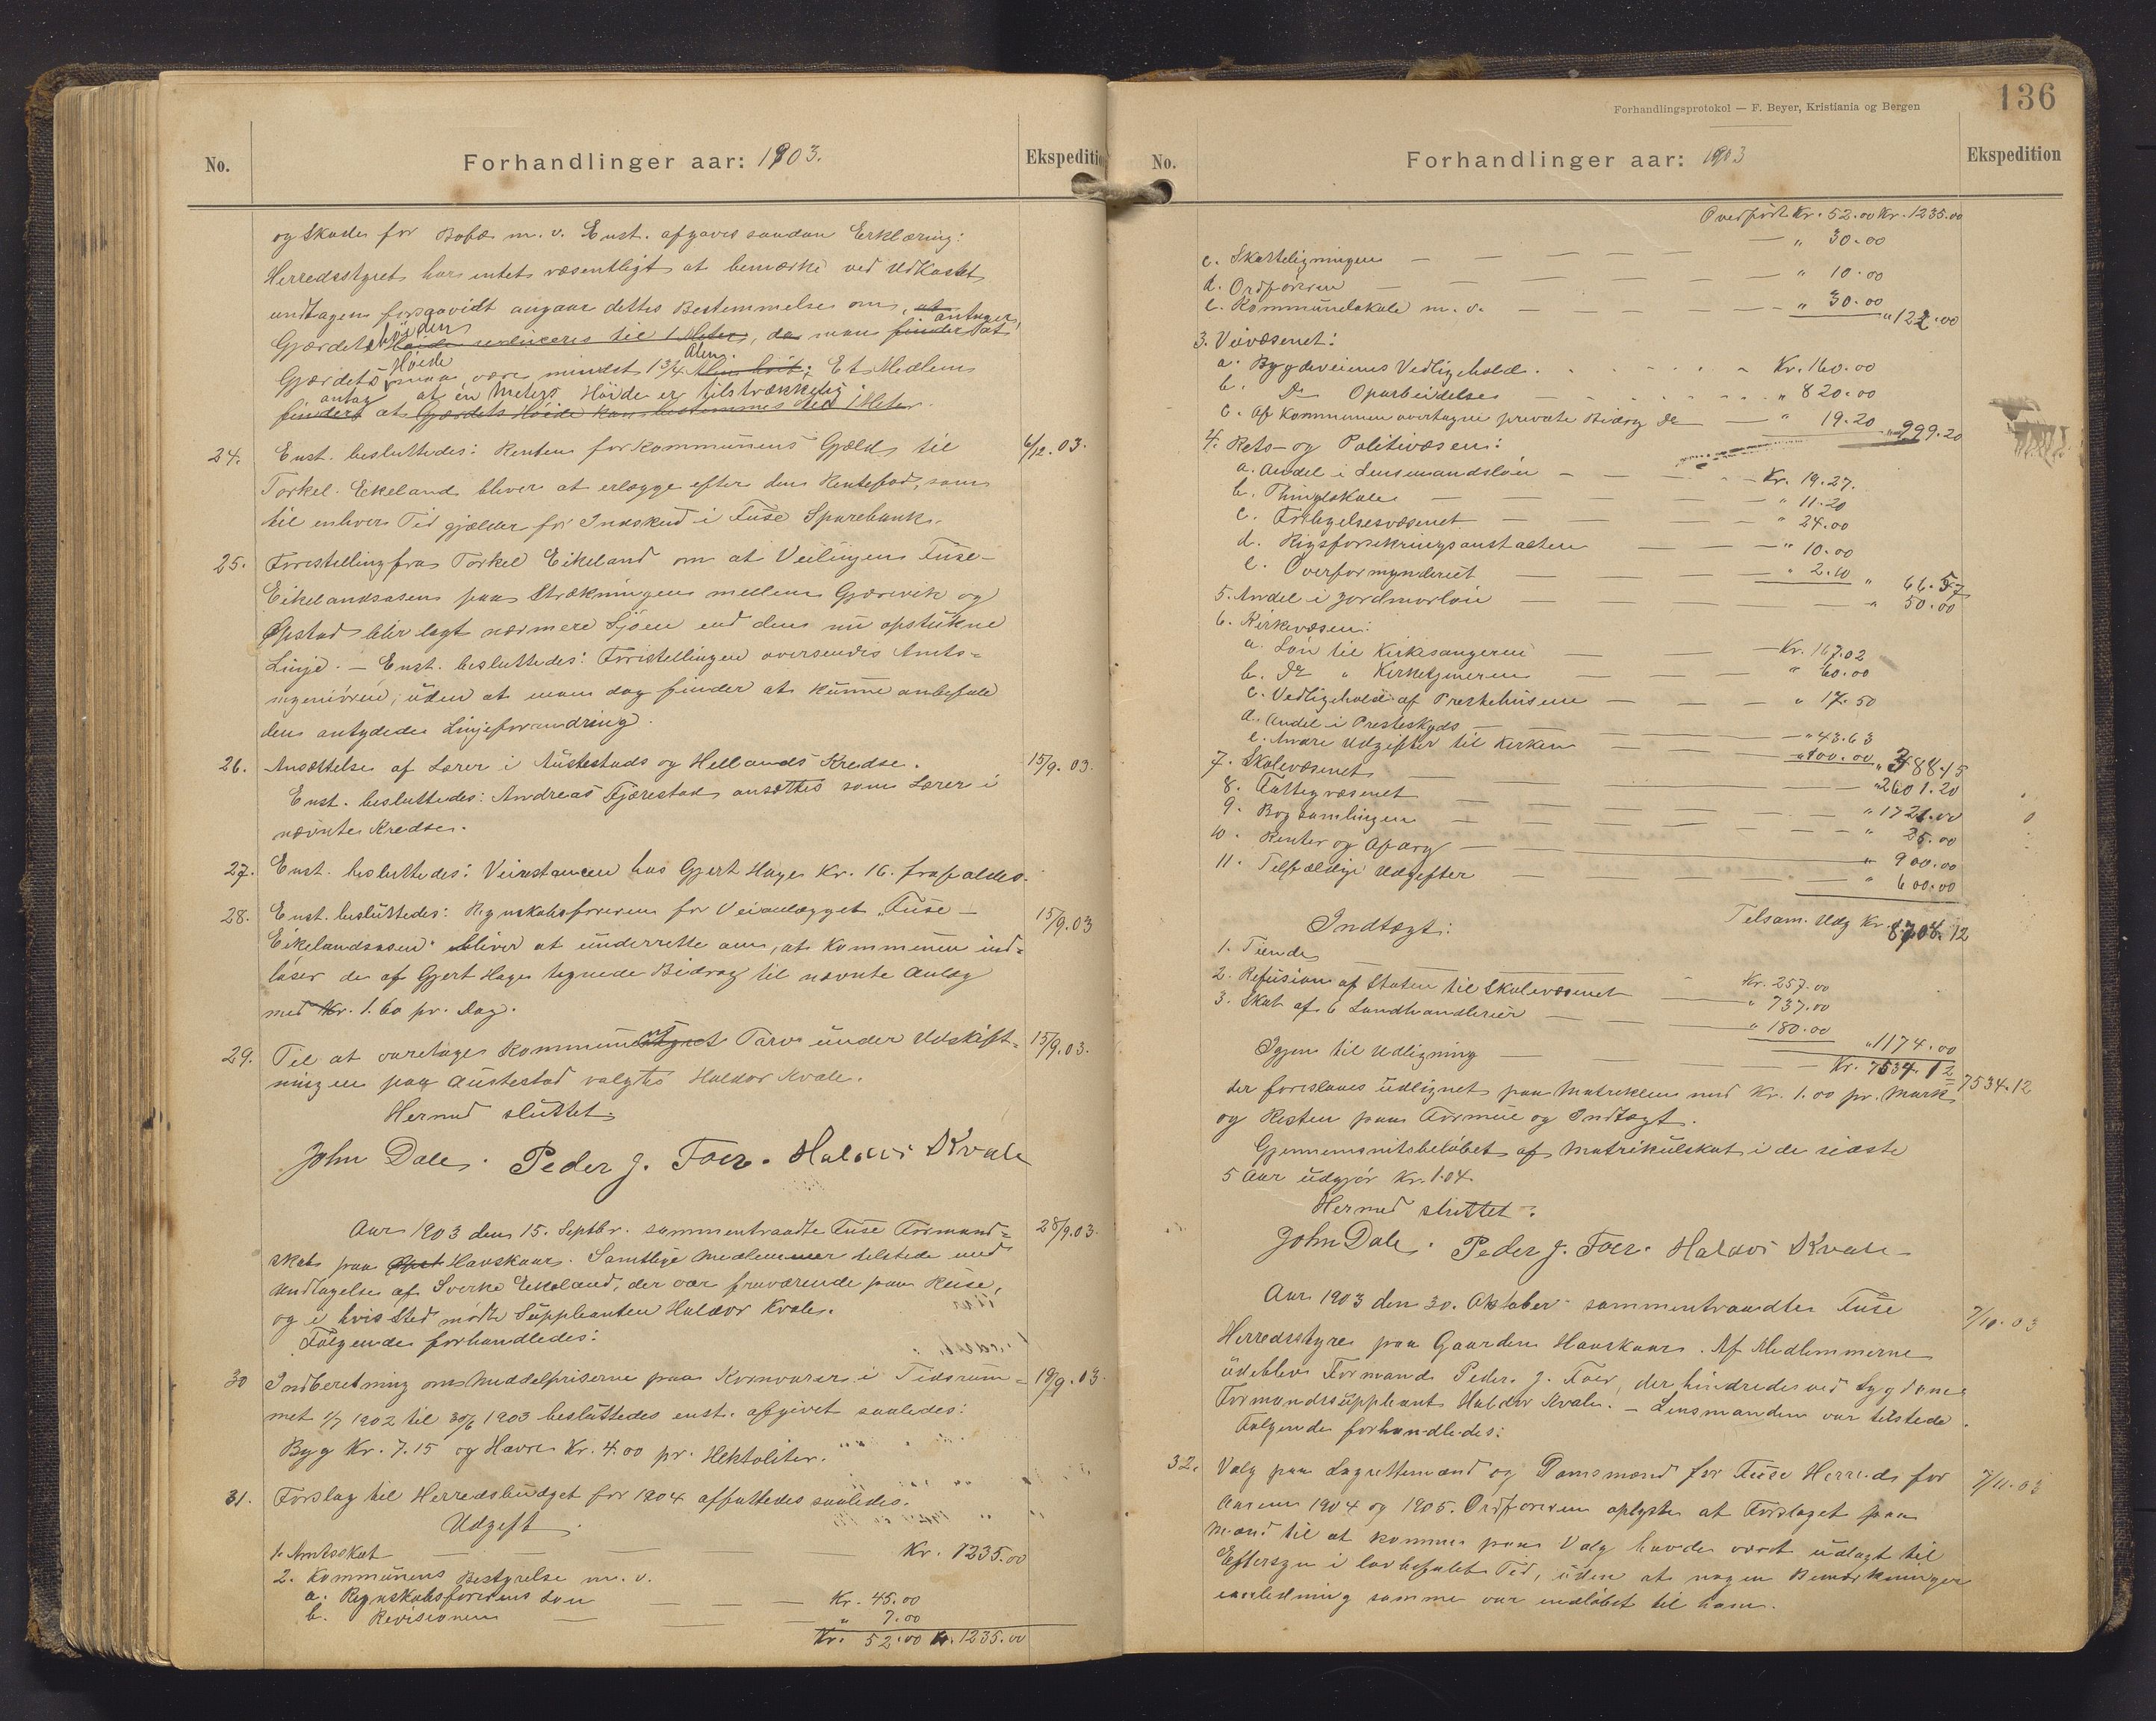 No.
Forhandlinger aar: 1903.
Ekspedition
og Skade for Bofæ m. v. Enst. afgaves saadan Erklæring:
Herredsstyret har intet væsentligt at bemærke ved Udkastet
undtagen forsaavidt angaar dettes Bestemmelse om, at
Gjærdets Høide reduceres til 1 Meter, da man finder at antager,
Gjærdets Høide maa være mindst 1 3/4 Alen. Et Medlem
antog at en Meters Høide er tilstrækkelig.
finder at Gjærdets Høide kan bestemmes til 1 Meter.
24. Enst. besluttedes: Renten for Kommunens Gjæld til 6/12.03.
Torkel Eikeland bliver at erlægge efter den Rentefod, som
til enhver Tid gjælder for Indskud i Fuse Sparebank.
25. Forestilling fra Torkel Eikeland om at Veilinjen Fuse-
Eikelandsosen paa Strækningen mellem Gjerevik og
Øpstad blir lagt nærmere Sjøen end den nu opstukne
Linje. - Enst. besluttedes: Forestillingen oversendes Amts-
ingeniøren, uden at man dog finder at kunne anbefale
den antydede Linjeforandring.
26. Ansættelse af Lærer i Austestads og Hellands Kredse. 15/9.03.
Enst. besluttedes: Andreas Tjærestad ansættes som Lærer i
nævnte Kredse.
27. Enst. besluttedes: Veirestancen hos Gjert Hage Kr. 16. frafaldes.
28. Enst. besluttedes: Regnskabsføreren for Veianlægget "Fuse- 15/9.03
Eikelandsosen" bliver at underrette om, at Kommunen ind-
løser de af Gjert Hage tegnede Bidrag til nævnte Anlæg
med Kr. 1.60 pr. Dag.
29. Til at varetage Kommunens Tarv under Udskift- 15/9.03.
ningen paa Austestad valgtes Haldor Kvale.
Hermed sluttet.
John Dale. Peder J. Foer. Haldor Kvale
Aar 1903 den 15. Septbr. sammentraadte Fuse Formand- 28/9.03.
skab paa Havskaar. Samtlige Medlemmer tilstede med
Undtagelse af Sverke Eikeland, der var fraværende paa Reise,
og i hvis Sted mødte Suppleanten Haldor Kvale.
Følgende forhandledes:
30 Indberetning om Middelpriserne paa Kornvarer i Tidsrum- 19/9.03.
met 1/7 1902 til 30/6 1903 besluttedes enst. afgivet saaledes:
Byg Kr. 7.15 og Havre Kr. 4.00 pr. Hektoliter.
31. Forslag til Herredsbudget for 1904 affattedes saaledes.
Udgift.
1. Amtsskat Kr. 1235.00
2. Kommunens Bestyrelse m. v.
a. Regnskabsførerens Løn Kr. 45.00
b. Revisionen " 7.00
Kr. 52.00 Kr. 1235.00
136
Forhandlingsprotokol — F. Beyer, Kristiania og Bergen
No.
Forhandlinger aar: 1903
Ekspedition
Overført Kr. 52.00 Kr. 1235.00
c. Skatteligningen " 30.00
d. Ordføreren " 10.00
e. Kommunelokale m. v. " 30.00 " 122.00
3. Veivæsenet:
a. Bygdeveienes Vedligehold. Kr. 160.00
b. Do Oparbeidelse " 820.00
c. Af Kommunen overtagne private Bidrag do " 19.20 " 999.20
4. Rets- og Politivæsen:
a. Andel i Lensmandsløn Kr. 19.27.
b. Thinglokale " 11.20
c. Fribyelsesvæsenet " 24.00
d. Rigsforsikringsanstalten " 10.00
e. Overformynderiet " 2.10 " 66.57
5. Andel i Jordmorløn " 50.00
6. Kirkevæsen:
a. Løn til Kirkesangeren Kr. 167.02
b. Do " Kirketjeneren " 60.00
c. Vedligehold af Prestehusene " 17.50
d. Andel i Presteskyds " 43.63
e. Andre Udgifter til Kirken " 100.00 " 388.15
7. Skolevæsenet " 2601.20
8. Fattigvæsenet " 1721.00
9. Bogsamlingen " 25.00
10. Renter og Afdrag " 900.00
11. Tilfældige Udgifter " 600.00
Tilsam. Udg Kr. 8708.12
Indtægt:
1. Tiende Kr. 257.00
2. Refusion af Staten til Skolevæsenet " 737.00
3. Skat af 6 Landhandlerier " 180.00 " 1174.00
Igjen til Udligning Kr. 7534.12 7534.12
der foreslaaes udlignet paa Matrikelen med Kr. 1.00 pr. Mark
og Resten paa Formue og Indtægt.
Gjennemsnitsbeløbet af Matrikulskat i de sidste
5 Aar udgjør Kr. 1.04.
Hermed sluttet.
John Dale. Peder J. Foer. Haldor Kvale
Aar 1903 den 30. Oktober sammentraadte Fuse 7/10.03
Herredsstyre paa Gaarden Havskaar. Af Medlemmerne
udeblev Formand Peder J. Foer, der hindredes ved Sygdom
Formandssuppleant Haldor Kvale. - Lensmanden var tilstede.
Følgende forhandledes:
32. Valg paa Lagrettemænd og Domsmænd for Fuse Herred for 7/11.03
Aarene 1904 og 1905. Ordføreren oplyste at Forslaget paa
Mænd til at komme paa Valg havde været udlagt til
Eftersyn i lovbefalet Tid, uden at nogen Bemærkninger
i anledning samme var indløbet til ham.